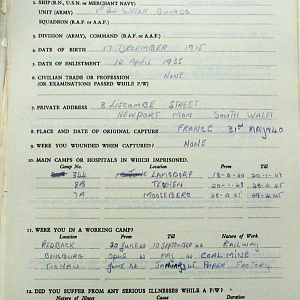 1. SHIP (R.N., U.S.N. or MERCHANT NAVY)
UNIT (ARMY) 1st Bn WELSH GUARDS
SQUADRON (R.A.F. or A.A.F.)
3. DIVISION (ARMY), COMMAND (R.A.F. or A.A.F.)
4. DATE OF BIRTH 17 DECEMBER 1915
5. DATE OF ENLISTMENT 12 APRIL 1935
6. CIVILIAN TRADE OR PROFESSION NONE
(OR EXAMINATIONS PASSED WHILE P/W)
7. PRIVATE ADDRESS 8 LISCOMBE STREET
NEWPORT MON SOUTH WALES
8. PLACE AND DATE OF ORIGINAL CAPTURE FRANCE 31st MAY 40
9. WERE YOU WOUNDED WHEN CAPTURED? NONE
10. MAIN CAMPS OR HOSPITALS IN WHICH IMPRISONED.
Camp No. Location From Till
344 LAMSDORF
8B TESCHEN
7A MOOSEBERG
11. WERE YOU IN A WORKING CAMP?
Location From Till Nature of Work
20 JUNE 40 10 SEPTEMBER RAILWAY
COAL MINE
TICHAU JUNE PAPER FACTORY
12. DID YOU SUFFER FROM ANY SERIOUS ILLNESSES WHILE A P/W?
Nature of Illness Cause